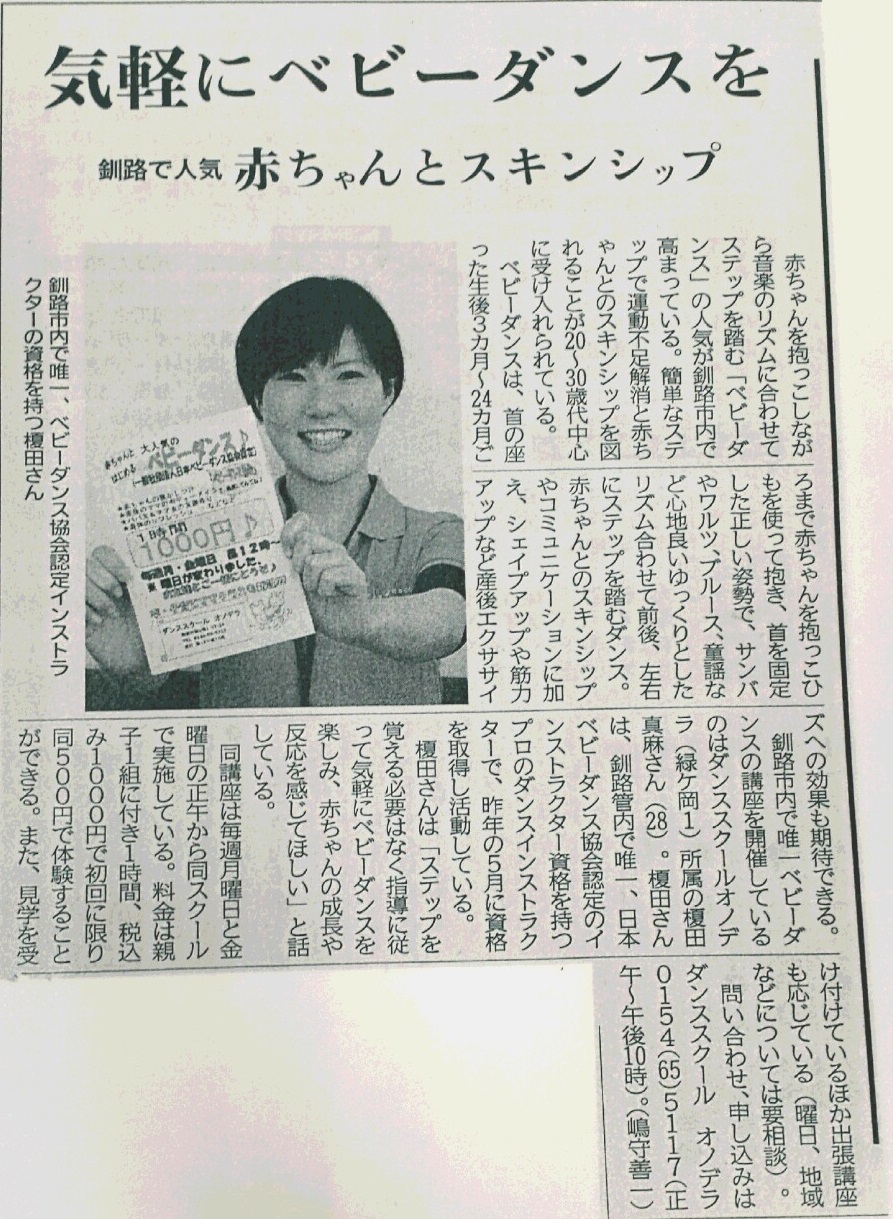 気軽にベビーダンスを
釧路で人気 赤ちゃんとスキンシップ
赤ちゃんを抱っこしなが
ら音楽のリズムに合わせて
ステップを踏む「ベビーダ
ンス」の人気が釧路市内で
高まっている。簡単なステ
ップで運動不足解消と赤ち
ゃんとのスキンシップを図
れることが20〜30歳代中心
に受け入れられている。
ベビーダンスは、首の座
った生後3カ月〜24カ月ご
ろまで赤ちゃんを抱っこひ
もを使って抱き、首を固定
した正しい姿勢で、サンバ
やワルツ、ブルース、童謡な
ど心地良いゆっくりとした
リズム合わせて前後、左右
にステップを踏むダンス。
赤ちゃんとのスキンシップ
やコミュニケーションに加
え、シェイプアップや筋力
アップなど産後エクササイ
ズへの効果も期待できる。
釧路市内で唯一ベビーダ
ンスの講座を開催している
のはダンススクールオノデ
ラ（緑ケ岡1）所属の榎田
真麻さん（28）。榎田さん
は、釧路管内で唯一、日本
ベビーダンス協会認定のイ
ンストラクター資格を持つ
プロのダンスインストラク
ターで、昨年の5月に資格
を取得し活動している。
榎田さんは「ステップを
覚える必要はなく指導に従
って気軽にベビーダンスを
楽しみ、赤ちゃんの成長や
反応を感じてほしい」と話
している。
同講座は毎週月曜日と金
曜日の正午から同スクール
で実施している。料金は親
子1組に付き1時間、税込
み1000円で初回に限り
同500円で体験すること
ができる。また、見学を受
け付けているほか出張講座
も応じている（曜日、地域
などについては要相談）。
問い合わせ、申し込みは
ダンススクール オノデラ
0154(65)5117(正
午〜午後10時)。(嶋守善一)
釧路市内で唯一、ベビーダンス協会認定インストラ
クターの資格を持つ榎田さん
赤ちゃんと 大人気の
はじめる ベビーダンス♪
(一般社団法人日本ベビーダンス協会認定)
1時間
1000円♪
毎週月・金曜日 昼12時〜
※ 曜日が変わりました
ダンススクール オノデラ